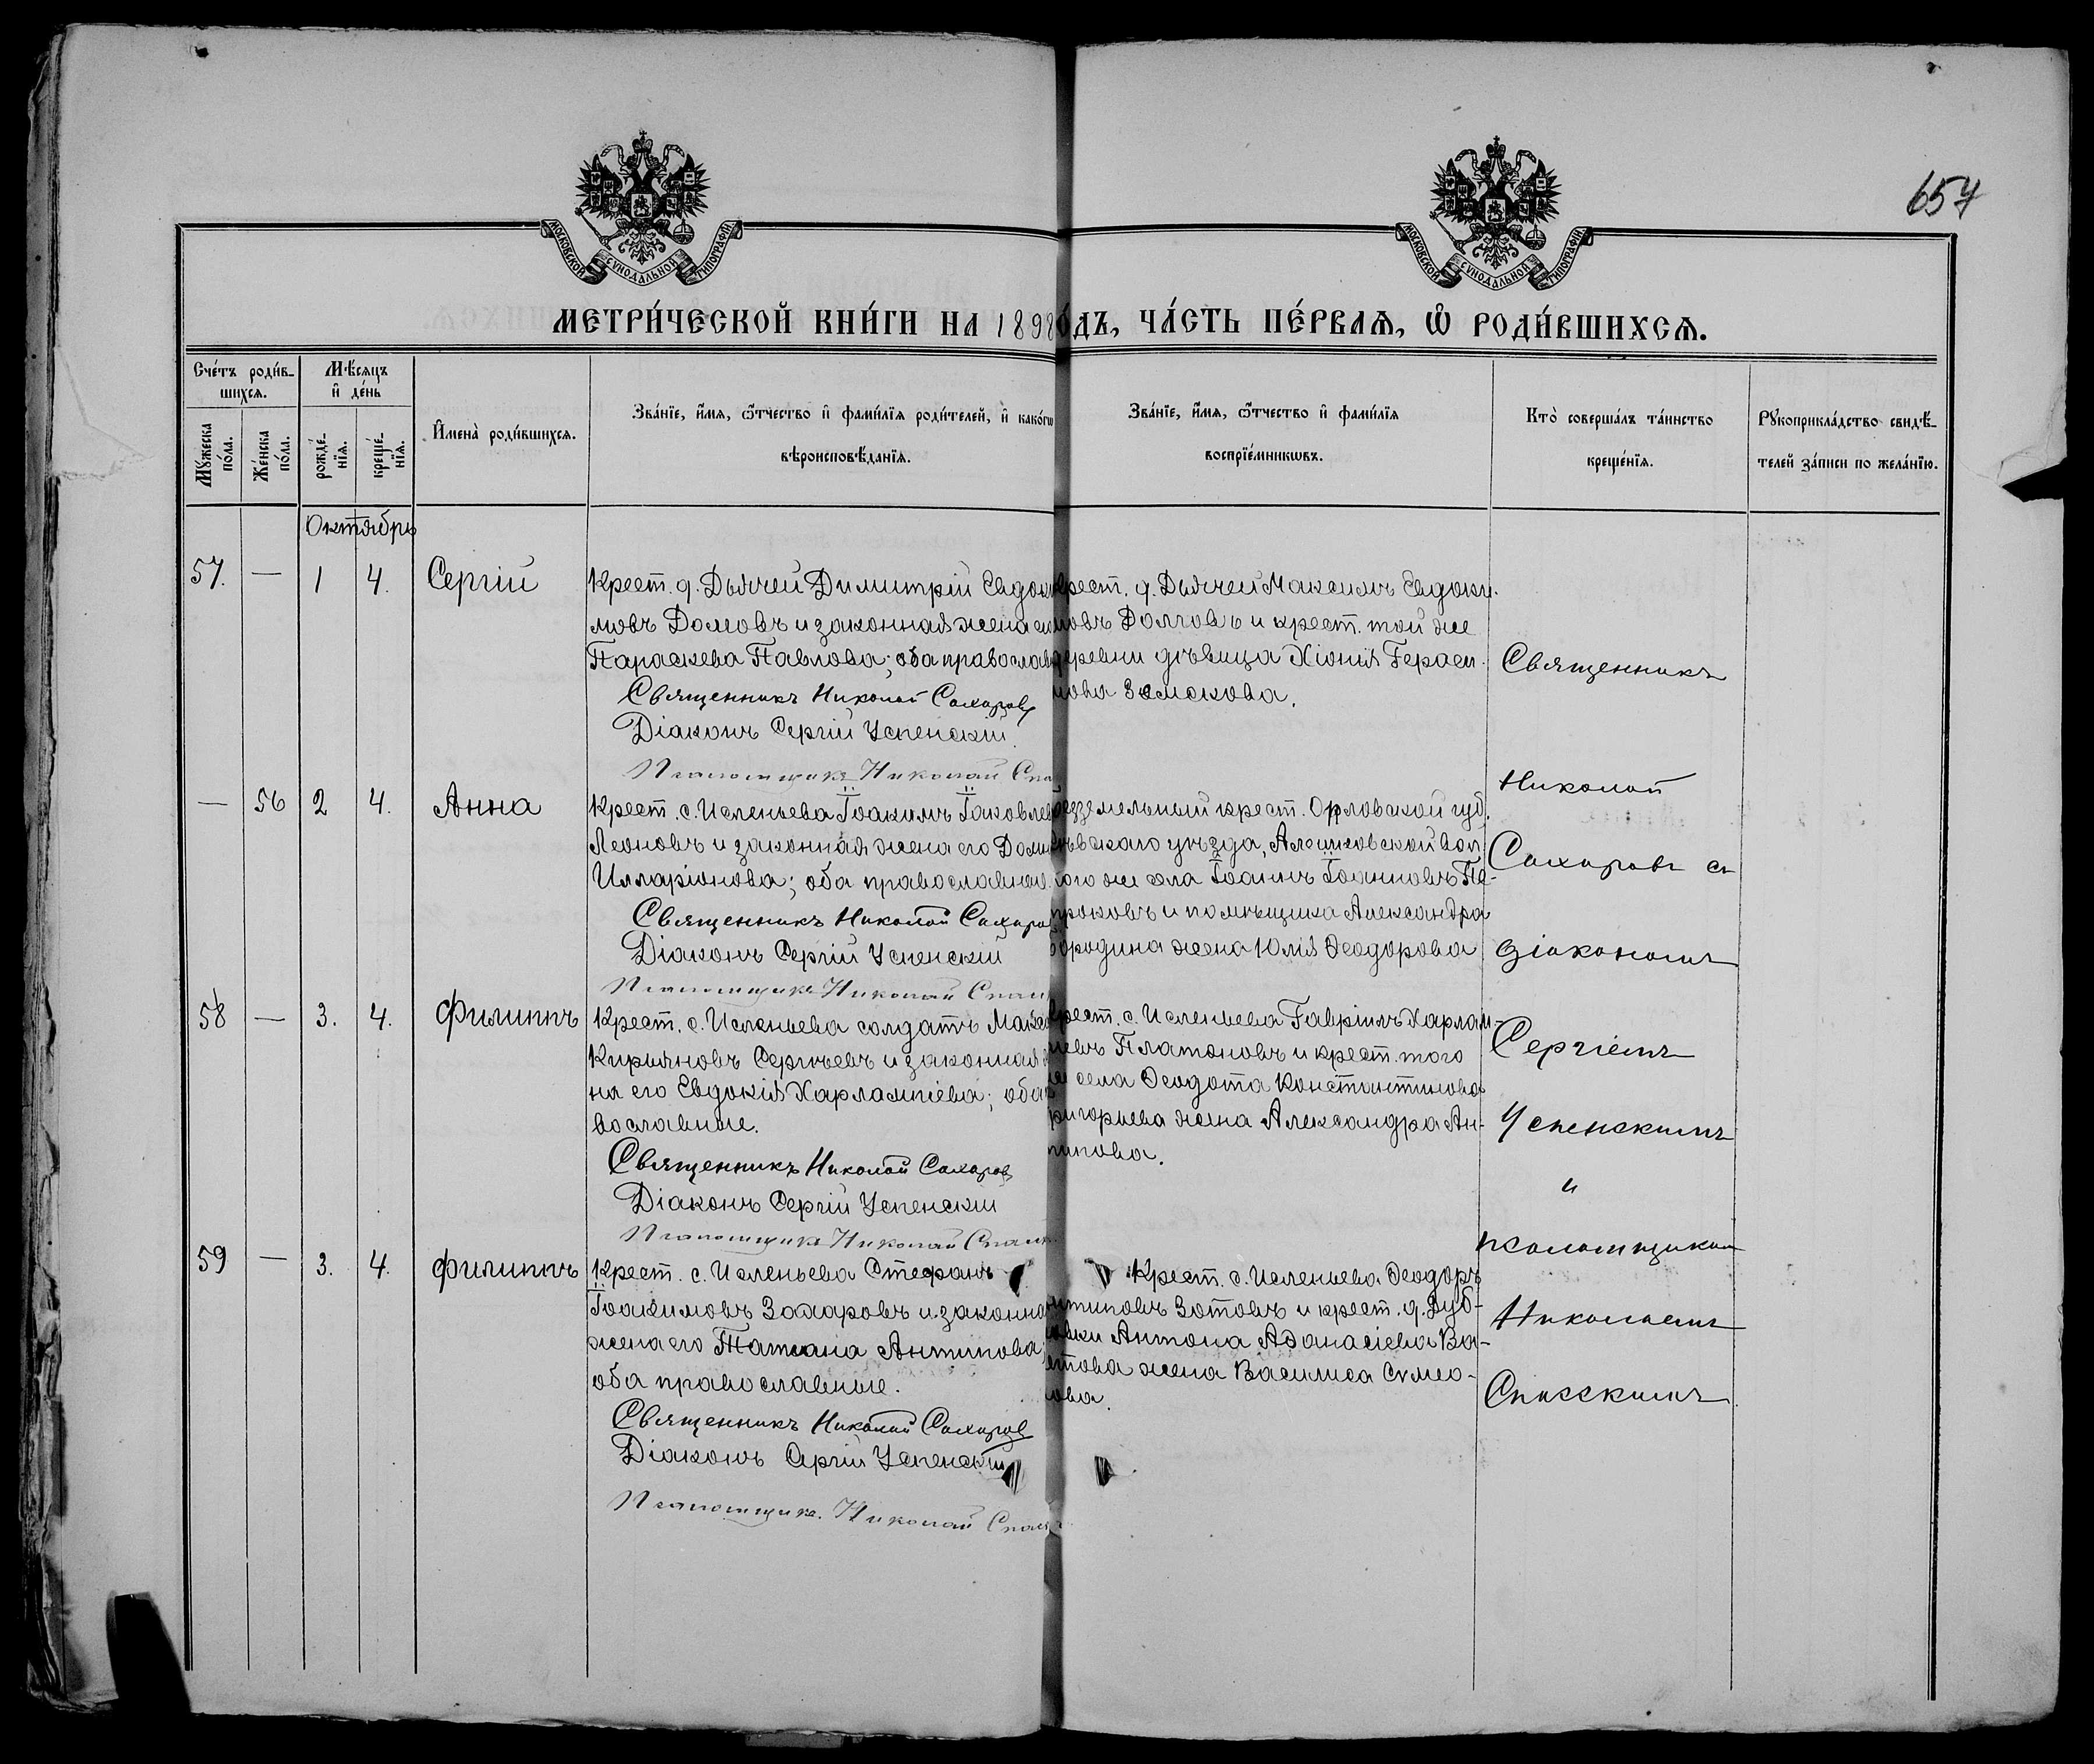 657
МОСКОВСКОЙ СѴНОДАЛЬНОЙ ТИПОГРАФІИ
МОСКОВСКОЙ СѴНОДАЛЬНОЙ ТИПОГРАФІИ
МЕТРИ́ЧЕСКОЙ КНИ́ГИ НА 1898 ГО́ДЪ, ЧА́СТЬ ПЕ́РВАѦ, Ѽ РОДИ́ВШИХСѦ.
Сче́тъ роди́в-
шихсѧ.
Мѣ́сяцъ
и҆ де́нь
Мꙋ́жеска
по́ла.
Же́нска
по́ла.
рожде́-
нїѧ.
креще́-
нїѧ.
И҆мена̀ роди́вшихсѧ.
Зва́нїе, и҆́мѧ, ѻ҆́тчество и҆ фами́лїѧ роди́телей, и҆ како́гѡ
вѣроисповѣ́данїѧ.
Зва́нїе, и҆́мѧ, ѻ҆́тчество и҆ фами́лїѧ
воспрїе́мникѡвъ.
Кто̀ соверша́лъ та́инство
креще́нїѧ.
Рꙋкоприкла́дство свидѣ́-
телей за́писи по жела́нїю.
Октябрь
57. — 1 4. Сергій
Крест. д. Дьячей Димитрій Евдоки
мовъ Долговъ и законная жена его
Параскева Павлова; оба православ
Священникъ Николай Сахаровъ
Діаконъ Сергій Успенскій.
Псаломщикъ Николай Спас
Крест. д. Дьячей Максимъ Евдоки-
мовъ Долговъ и крест. той же
деревни дѣвица Хіонія Герасим-
мова Замскова.
— 56 2 4. Анна
Крест. с. Исленьева Іоакимъ Іаковлев
Леоновъ и законная жена его Домн
Илларіонова; оба православные.
Священникъ Николай Сахаров
Діаконъ Сергій Успенскій
Псаломщикъ Николай Спасс
Безземельный крест. Орловской губ.
уѣзда, Алешковской вол.
того же села Іоаннъ Іоанновъ Пе-
троковъ и помѣщика Александра
Бородина жена Юлія Ѳеодорова
58 — 3. 4. Филиппъ
Крест. с. Исленьева солдатъ Макс
Кирьяновъ Сергѣевъ и законная
на его Евдокія Харлампіева; оба
вославные.
Священникъ Николай Сахаровъ
Діаконъ Сергій Успенскій
Псаломщикъ Николай Спасс
Крест. с. Исленьева Гавріилъ Харлам-
піевъ Платоновъ и крест. того
же села Ѳеодота Константинова
Григорьева жена Александра Ан-
типова.
59 — 3. 4. Филиппъ
Крест. с. Исленьева Стефанъ
Іоакимовъ Захаровъ и законная
жена его Татіана Антипова;
оба православные.
Священникъ Николай Сахаров
Діаконъ Сергій Успенскій
Псаломщикъ Николай Спасс
Крест. с. Исленьева Ѳеодоръ
Антиповъ Зотовъ и крест. д. Дуб-
ровки Антона Аѳанасіева Ва-
това жена Василиса Сѵмео-
нова.
Священникъ
Николай
Сахаровъ съ
діакономъ
Сергіемъ
Успенскимъ
и
псаломщикомъ
Николаемъ
Спасскимъ.